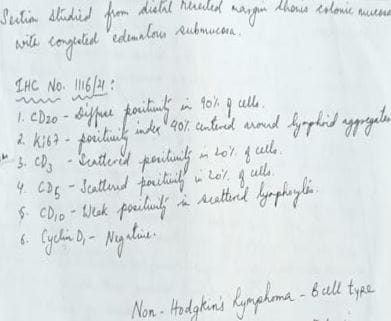 Section studied from distal resected margin shows colonic mucosa
with congested edematous submucosa.
IHC No. 1116/21:
1. CD20 - Diffuse positivity in 90% of cells.
2. Ki67 - positivity index 40% centered around lymphoid aggregates
3. CD3 - Scattered positivity in 20% of cells.
4. CD5 - Scattered positivity in 20% of cells.
5. CD10 - Weak positivity in scattered lymphocytes.
6. Cyclin D1 - Negative.
Non-Hodgkin's Lymphoma - B cell type